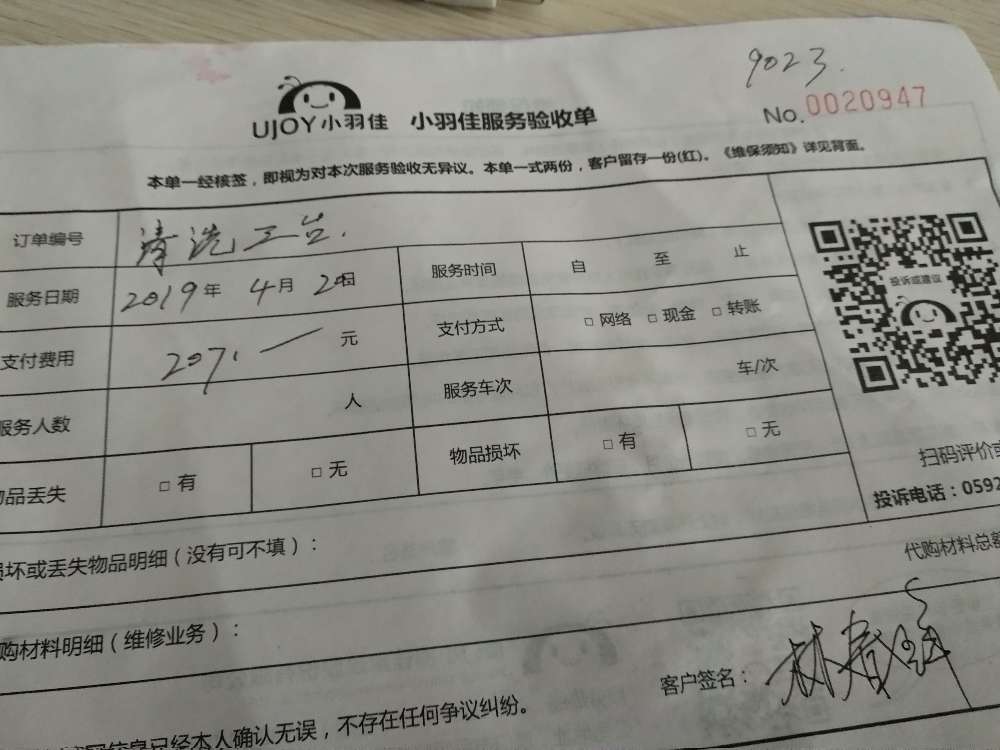 9023.
No.0020947
UJOY小羽佳 小羽佳服务验收单
本单一经核签，即视为对本次服务验收无异议。本单一式两份，客户留存一份(红)。《维保须知》详见背面。
订单编号 清洗三台.
服务日期 2019年 4月 20日 服务时间 自 至 止
支付费用 207.一 元 支付方式 □ 网络 □ 现金 □ 转账
服务人数 人 服务车次 车/次
品丢失 □ 有 □ 无 物品损坏 □ 有 □ 无
投诉或建议
扫码评价或
投诉电话：0592
坏或丢失物品明细（没有可不填）：
代购材料总额
购材料明细（维修业务）：
客户签名：
信息已经本人确认无误，不存在任何争议纠纷。